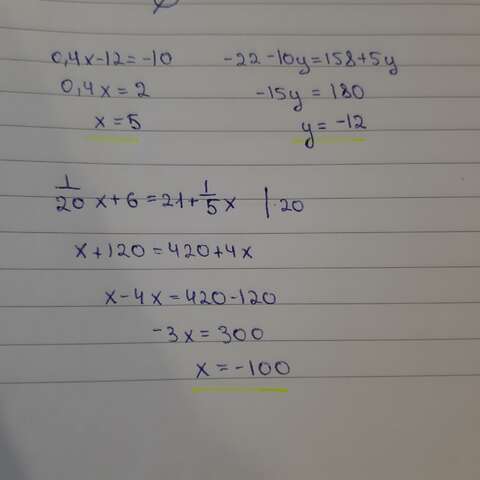 0,4x-12=-10
0,4x=2
x=5
-22-10y=158+5y
-15y=180
y=-12
1/20 x+6=21+1/5 x |·20
x+120=420+4x
x-4x=420-120
-3x=300
x=-100